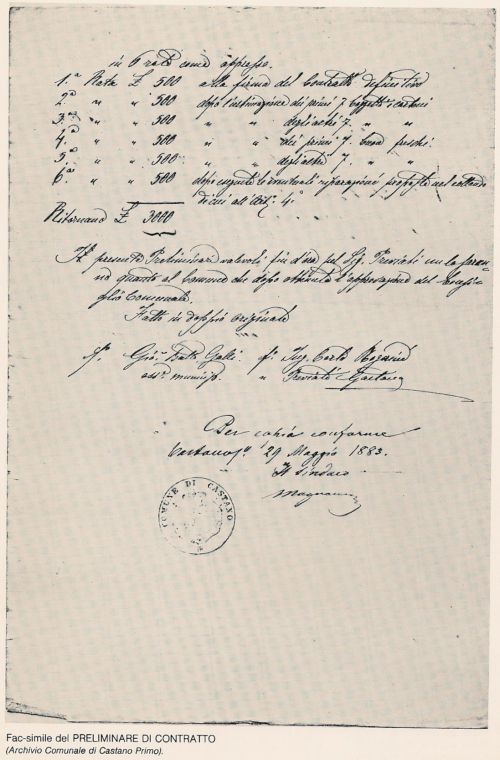 in 6 rate come appresso.
1.a Rata £ 500 alla firma del Contratto definitivo
2a " " " 500 dopo l'ultimazione dei primi 7 bozzetti e cartoni
3a " " " 500 " " degli altri 7. " "
4.a " " 500 " " dei primi 7. buon freschi.
5.a " " 500. " " degli altri 7. " "
6.a " " 500 dopo eseguite le eventuali riparazioni proposte nel collaudo
di cui all'Art.o 4o
Ritornano £ 3000
Il presente Preliminare valevole fin d'ora pel Sig. Previati
no quanto al Comune che dopo ottenuta l'approvazione del Consi-
glio Comunale.
Fatto in doppio originale
fo. Gio. Batta Galli fo Ing. Carlo
ass.e municip. " Previati Gaetano
Per copia conforme
Castano po. 29 Maggio 1883.
Il Sindaco
COMUNE DI CASTANO
Fac-simile del PRELIMINARE DI CONTRATTO
(Archivio Comunale di Castano Primo).